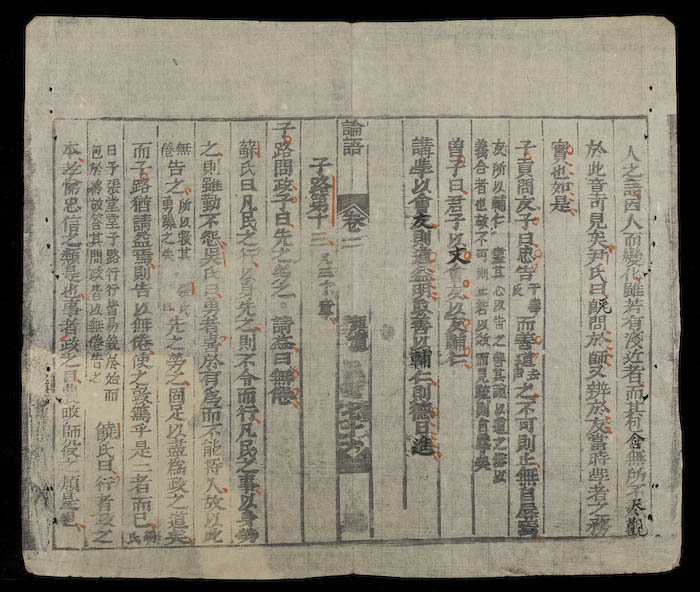 人之語因人而變化雖若有淺近者而其包含無所不
於此章可見矣尹氏曰既問於師又辨於友當時學者之務
實也如是
子貢問友子曰忠告而善道之不可則止無自辱焉
友所以輔仁盡其心以告之善其說以道之然以
義合者也故不可則止若以數而見疏則自辱矣
曾子曰君子以文會友以友輔仁
講學以會友則道益明取善以輔仁則德日進
論語
卷二
子路第十三
凡三十章
子路問政子曰先之勞之。請益曰無倦
蘇氏曰凡民之行以身先之則不令而行凡民之事以身勞
之則雖勤不怨吳氏曰勇者喜於有為而不能持久故以此
告之
先之勞之固足以盡為政之道矣
而子路猶請益焉則告以無倦使之敦篤乎是二者而已
曰子張堂堂子路行行皆易銳於始而
包於終故答其問政皆以無倦告之
饒氏曰行者政之
本孝悌忠信之類是也事者政之具
師役之類是也